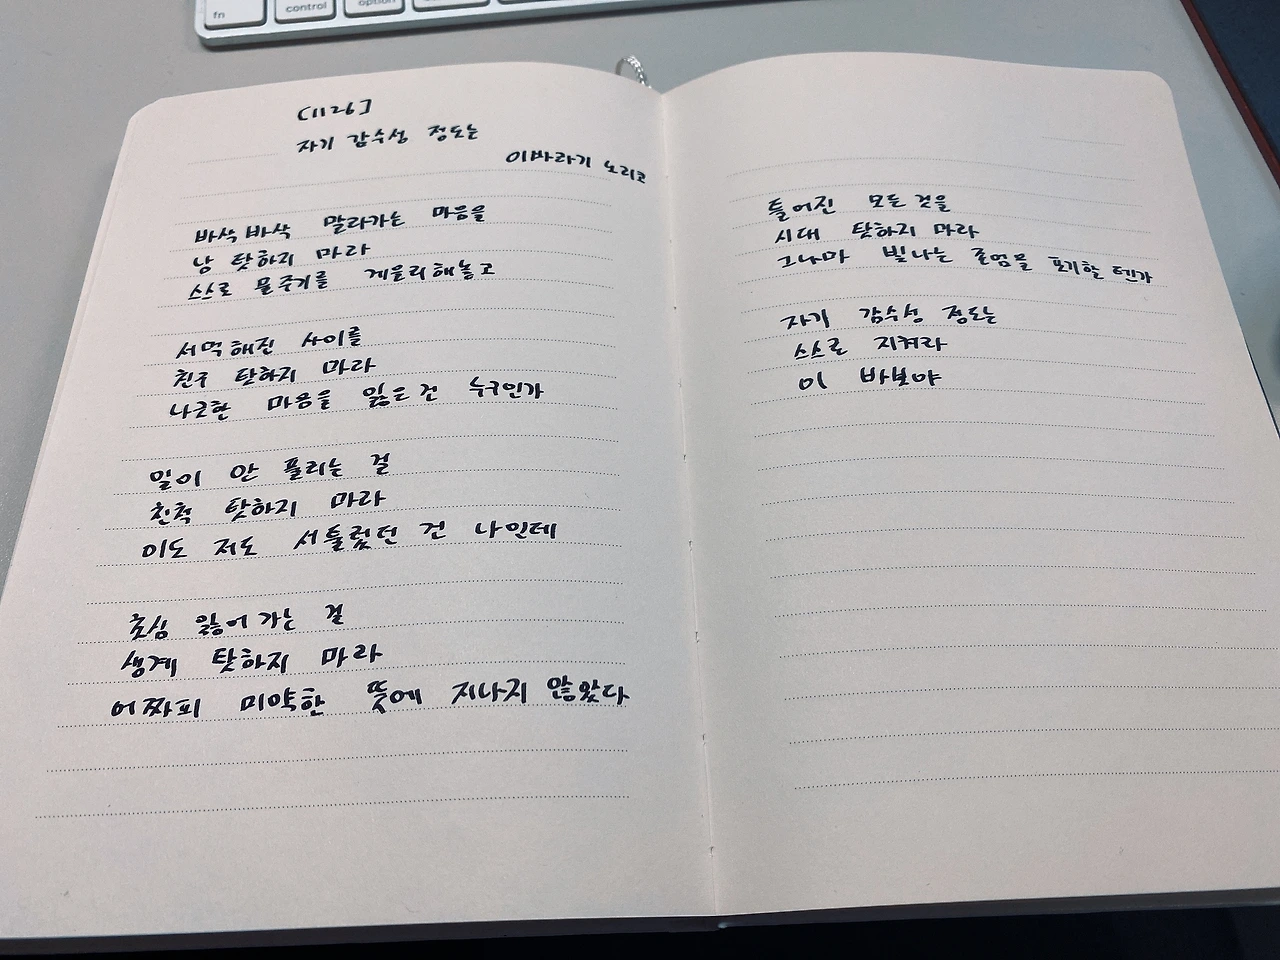 fn
control
option
[1126]
자기 감수성 정도는
이바라기 노리코
바삭바삭 말라가는 마음을
남 탓하지 마라
스스로 물주기를 게을리해놓고
서먹해진 사이를
친구 탓하지 마라
나긋한 마음을 잃은 건 누구인가
일이 안 풀리는 걸
친척 탓하지 마라
이도 저도 서툴렀던 건 나인데
초심 잃어가는 걸
생계 탓하지 마라
어짜피 미약한 뜻에 지나지 않았다
틀어진 모든 것을
시대 탓하지 마라
그나마 빛나는 존엄을 포기할 텐가
자기 감수성 정도는
스스로 지켜라
이 바보야